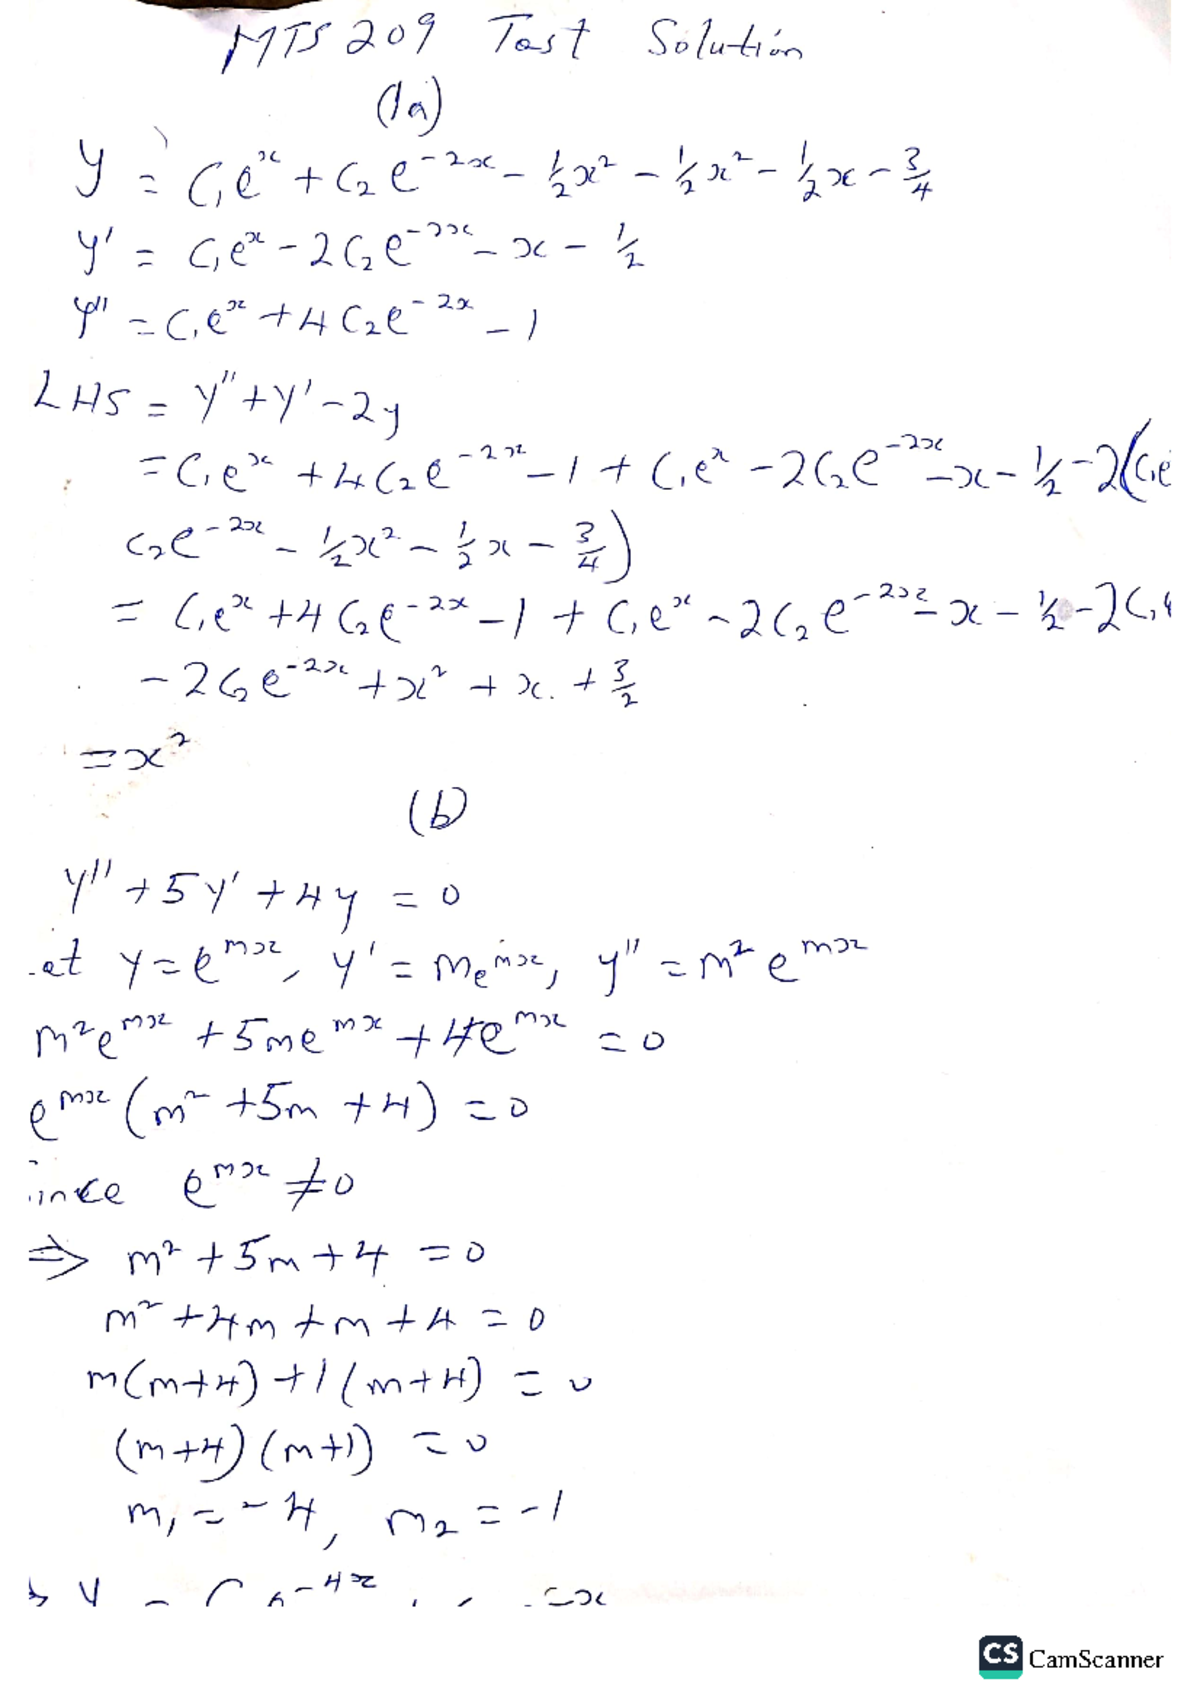 MTS 209 Test Solution
(1a)
y = C₁eˣ + C₂e⁻²ˣ - ½x² - ½x² - ½x - ¾
y' = C₁eˣ - 2C₂e⁻²ˣ - x - ½
y'' = C₁eˣ + 4C₂e⁻²ˣ - 1
LHS = y'' + y' - 2y
= C₁eˣ + 4C₂e⁻²ˣ - 1 + C₁eˣ - 2C₂e⁻²ˣ - x - ½ - 2(C₁e
C₂e⁻²ˣ - ½x² - ½x - ¾)
= C₁eˣ + 4C₂e⁻²ˣ - 1 + C₁eˣ - 2C₂e⁻²ˣ - x - ½ - 2C₁
- 2C₂e⁻²ˣ + x² + x + 3/2
= x²
(b)
y'' + 5y' + 4y = 0
et y = eᵐˣ, y' = meᵐˣ, y'' = m²eᵐˣ
m²eᵐˣ + 5meᵐˣ + 4eᵐˣ = 0
eᵐˣ(m² + 5m + 4) = 0
ince eᵐˣ ≠ 0
⇒ m² + 5m + 4 = 0
m² + 4m + m + 4 = 0
m(m+4) + 1(m+4) = 0
(m+4)(m+1) = 0
m₁ = -4, m₂ = -1
CS CamScanner